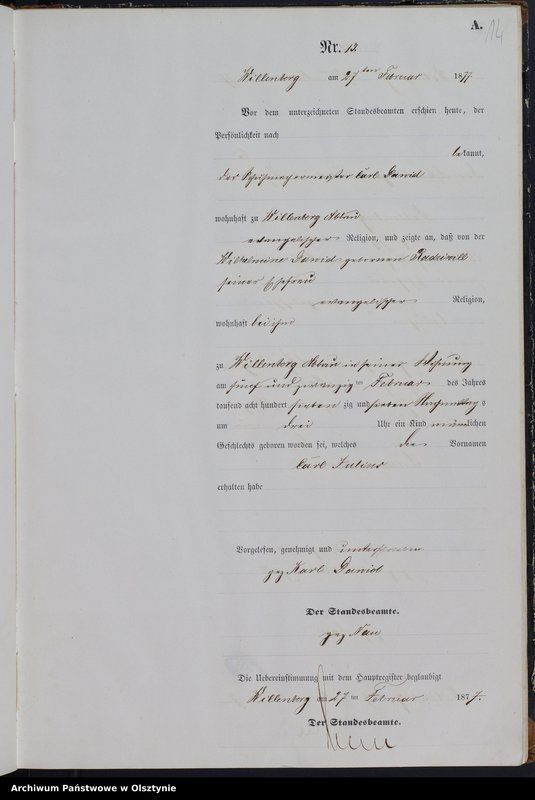 A.
14
Nr. 13.
Willenberg am 27ten Februar 1877
Vor dem unterzeichneten Standesbeamten erschien heute, der
Persönlichkeit nach
bekannt,
der Schuhmachermeister Carl Dawid
wohnhaft zu Willenberg Abbau
evangelischer Religion, und zeigte an, daß von der
Wilhelmine Dawid geborenen Radziwill
seiner Ehefrau
evangelischer Religion,
wohnhaft bei ihm
zu Willenberg Abbau in seiner Wohnung
am fünf und zwanzig ten Februar des Jahres
tausend acht hundert sieben zig und sieben Nachmittags
um drei Uhr ein Kind männlichen
Geschlechts geboren worden sei, welches die Vornamen
Carl Julius
erhalten habe
Vorgelesen, genehmigt und unterschrieben
gez Karl Dawid
Der Standesbeamte.
gez Nau
Die Uebereinstimmung mit dem Hauptregister beglaubigt
Willenberg am 27 ten Februar 1877.
Der Standesbeamte.
Archiwum Państwowe w Olsztynie